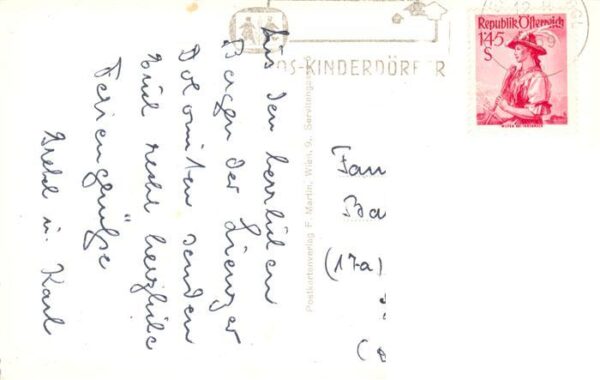 OS-KINDERDÖRFER
Republik Österreich
1'45
S
Aus den herrlichen
Bergen der Lienzer
Dolomiten senden
Euch recht herzliche
Feriengrüße
Gretel u. Karl
Postkartenverlag F. Martin, Wien, 9., Servitengas
Fam
Ba
(17a)